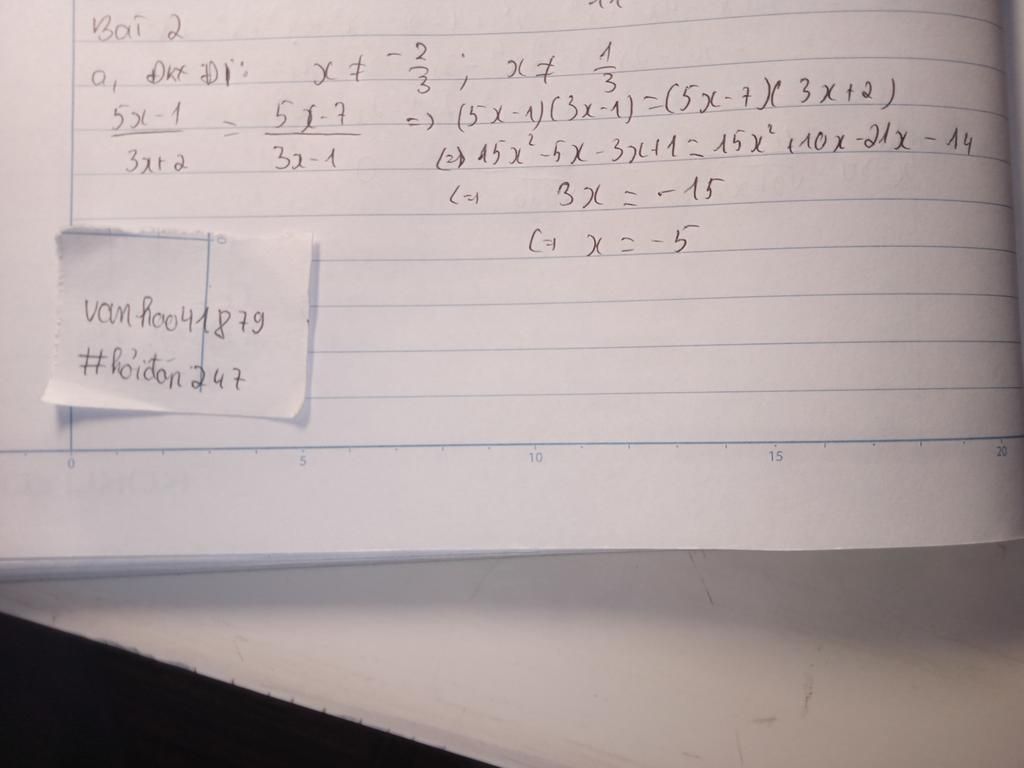 Bài 2
a, ĐKXĐ: x ≠ -2/3 ; x ≠ 1/3
(5x-1)/(3x+2) = (5x-7)/(3x-1) => (5x-1)(3x-1)=(5x-7)(3x+2)
(=) 15x²-5x-3x+1=15x²+10x-21x-14
(=) 3x = -15
(=) x = -5
vanhao41879
#hỏiđán247
0 5 10 15 20